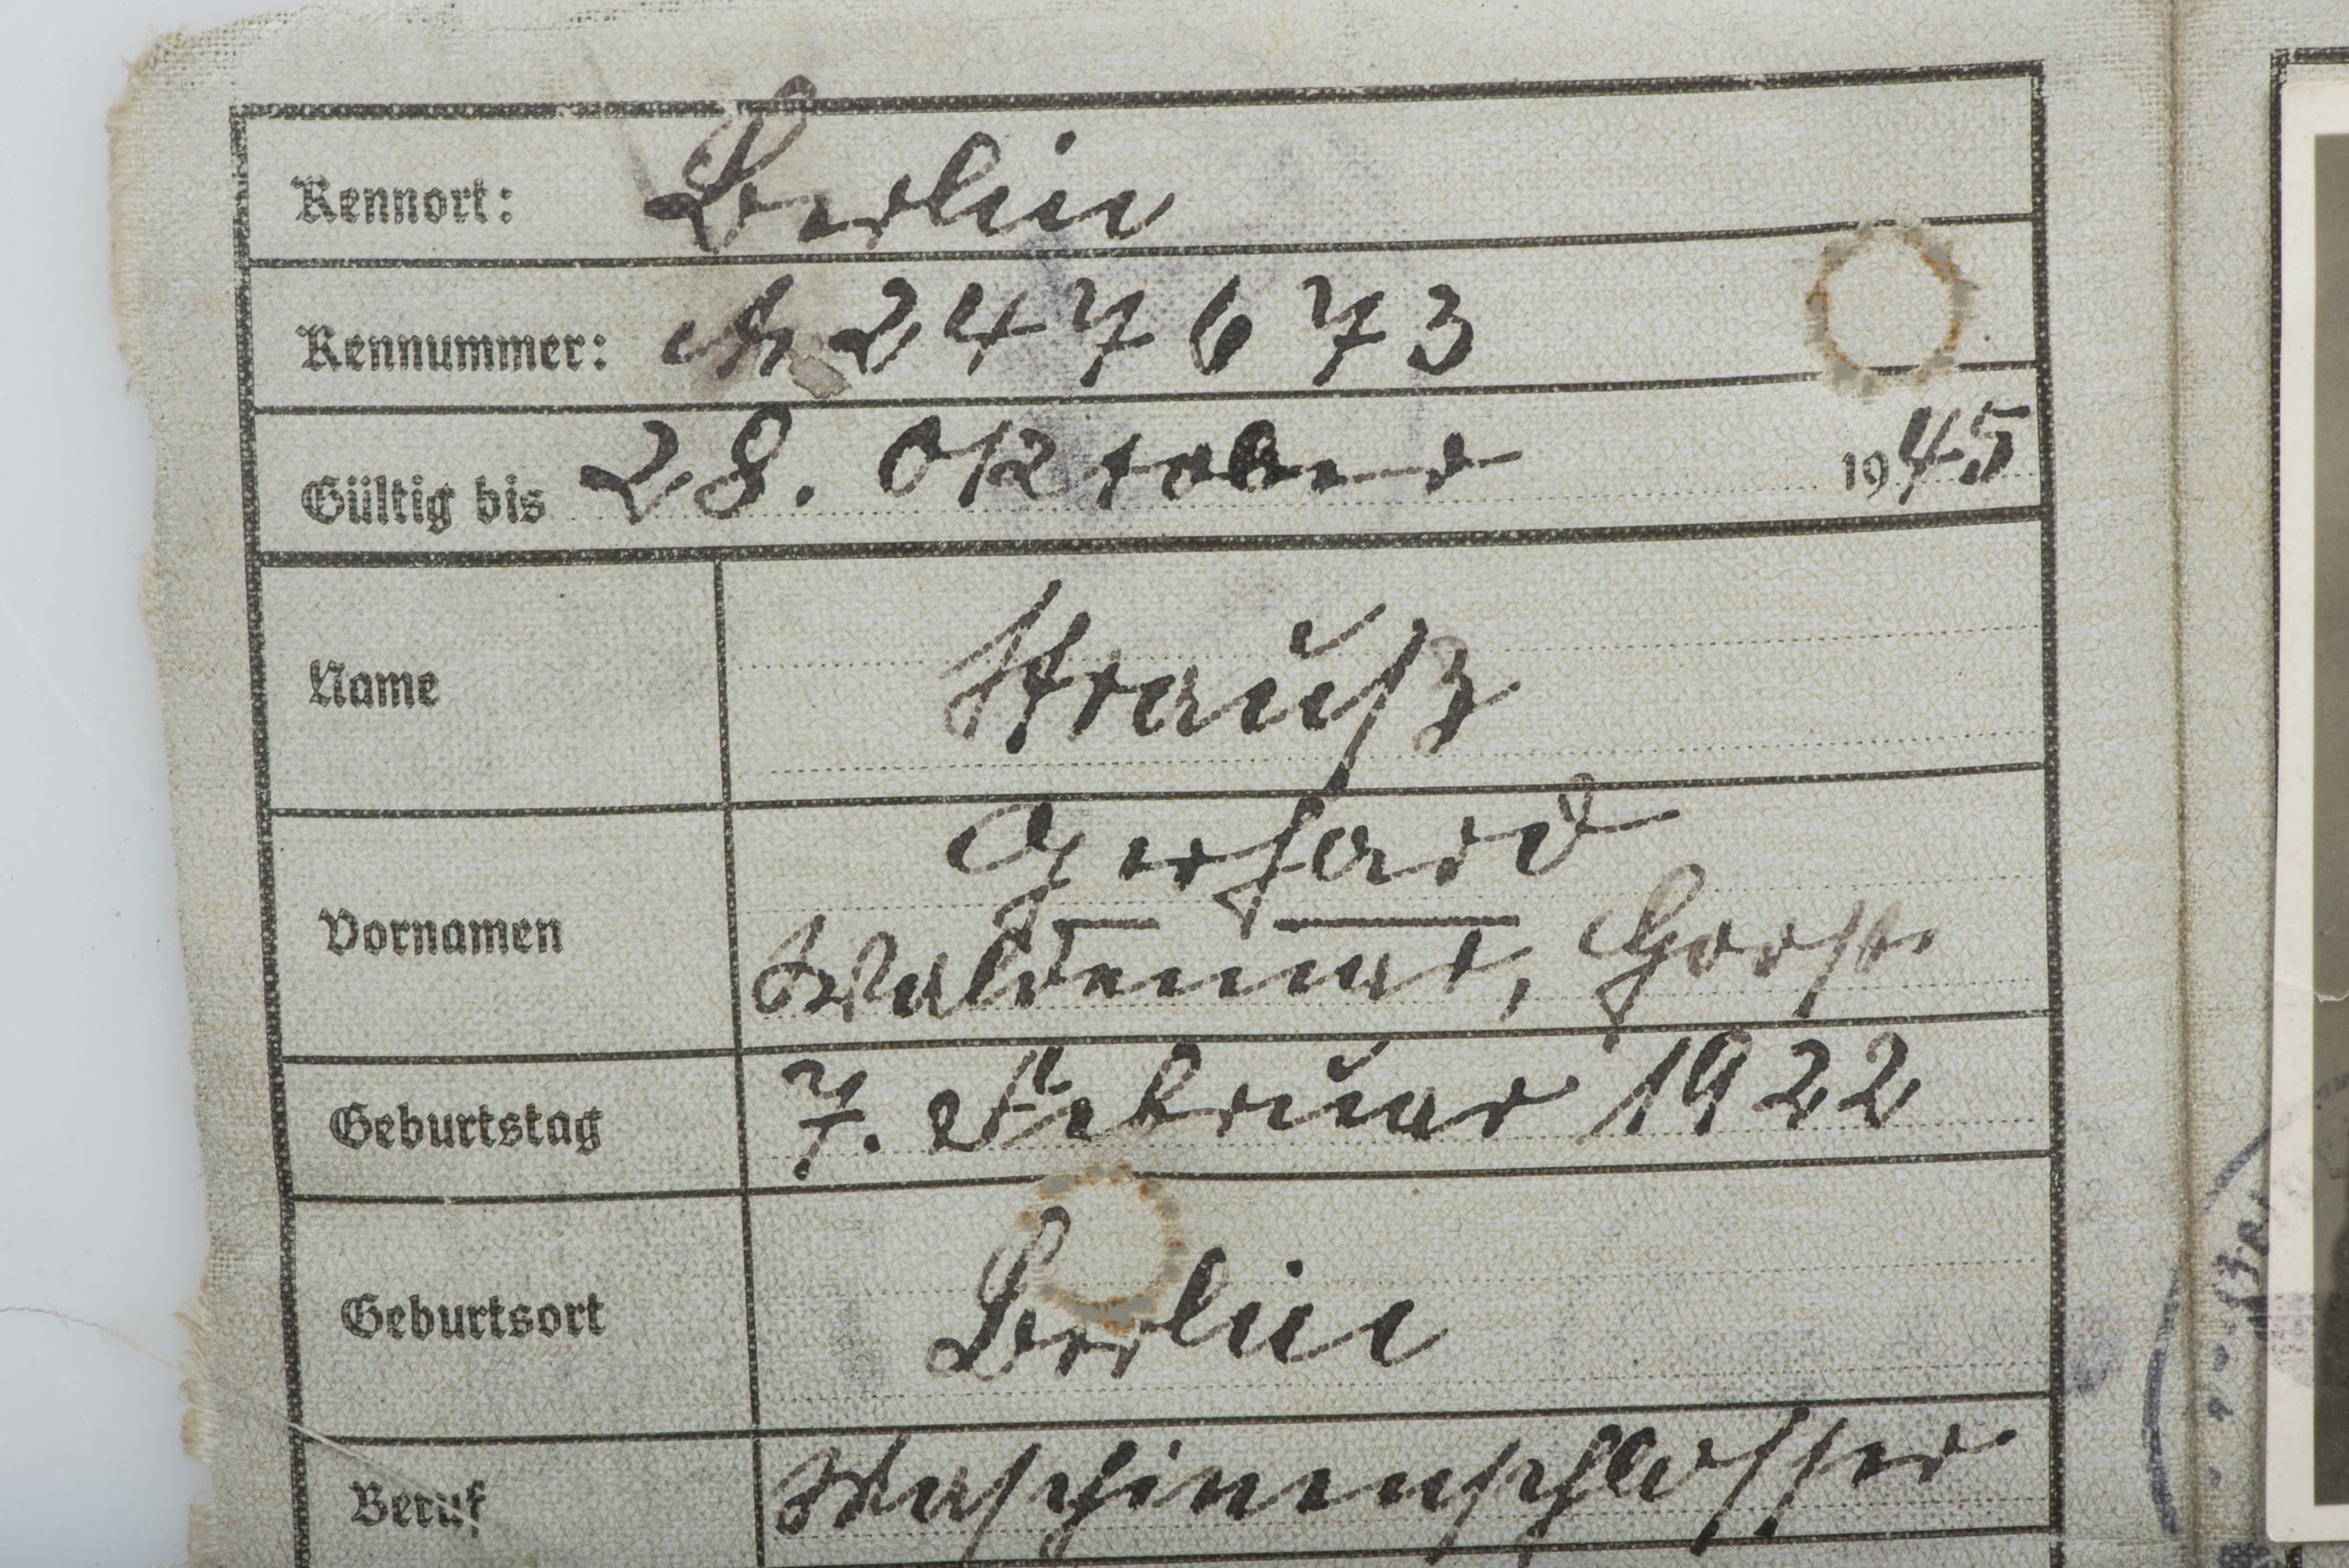 Kennort: Berlin
Kennummer: A 247673
Gültig bis 28. Oktober 1945
Name Strauß
Vornamen Gerhard
Waldemar, Horst
Geburtstag 7. Februar 1922
Geburtsort Berlin
Beruf Maschinenschlosser